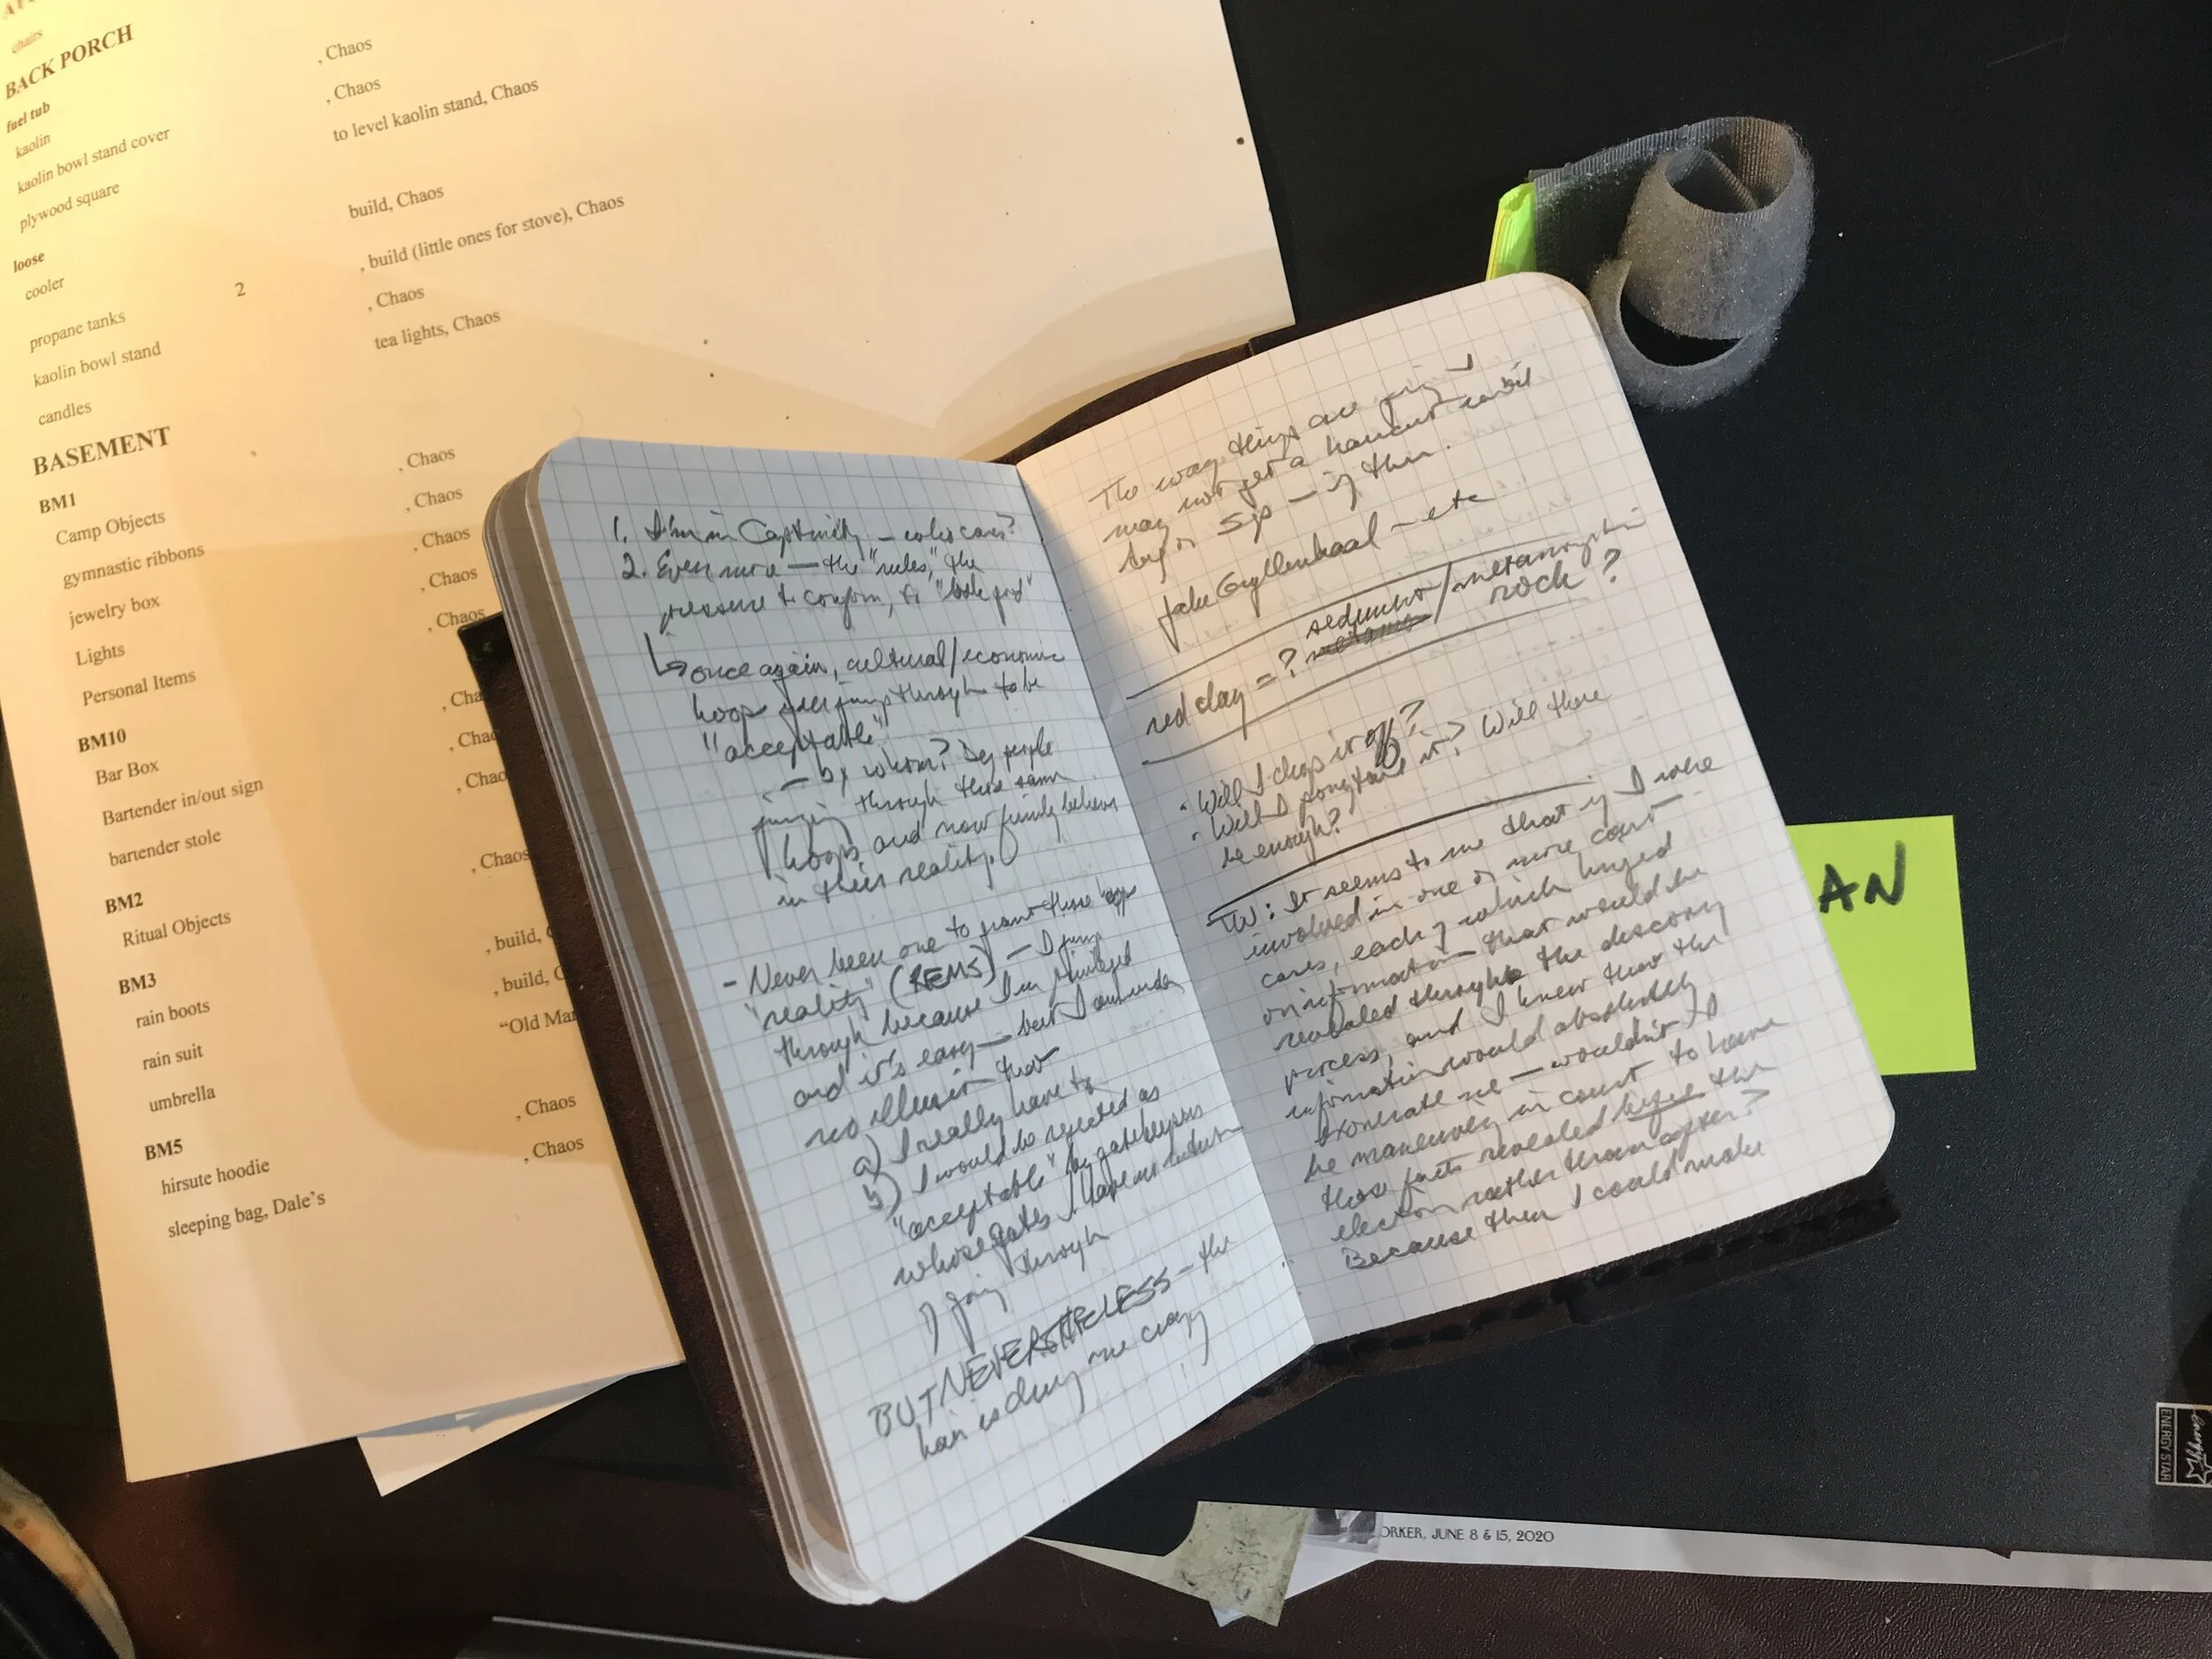 chairs
BACK PORCH
fuel tub , Chaos
kaolin , Chaos
kaolin bowl stand cover to level kaolin stand, Chaos
plywood square
loose build, Chaos
cooler , build (little ones for stove), Chaos
propane tanks 2 , Chaos
kaolin bowl stand tea lights, Chaos
candles
BASEMENT
BM1 , Chaos
Camp Objects , Chaos
gymnastic ribbons , Chaos
jewelry box , Chaos
Lights , Chaos
Personal Items
BM10 , Cha
Bar Box , Chao
Bartender in/out sign , Chao
bartender stole
BM2 , Chaos
Ritual Objects
BM3 , build, C
rain boots , build, C
rain suit "Old Mar
umbrella
BM5 , Chaos
hirsute hoodie , Chaos
sleeping bag, Dale's
1. I'm in Captivity – who cares?
2. Even more — the "rules," the
pressure to conform, to "look good"
↳ once again, cultural/economic
hoop jump through to be
"acceptable"
— by whom? By people
jumping through those same
hoops and now firmly believe
in their reality.
- Never been one to grant those hoops
"reality" (REMS) — I jump
through because I'm privileged
and it's easy — but I am under
no illusion that
a) I really have to
b) I would be rejected as
"acceptable" by gatekeepers
whose gates I have no intention
of going through
BUT NEVERTHELESS – the
hair is driving me crazy
The way things are going I
may not get a haircut until
Aug or Sep — if then.
Jake Gyllenhaal – etc
sedimentary/metamorphic
red clay = ? rock?
· Will I chop it off?
· Will I ponytail it? Will there
be enough?
TW: It seems to me that if I were
involved in one or more court
cases, each of which hinged
on information that would be
revealed through the discovery
process, and I knew that the
information would absolutely
exonerate me — wouldn't I
be maneuvering in court to have
those facts revealed before the
election rather than after?
Because then I could make
AN
ORKER, JUNE 8 & 15, 2020
energy
ENERGY STAR